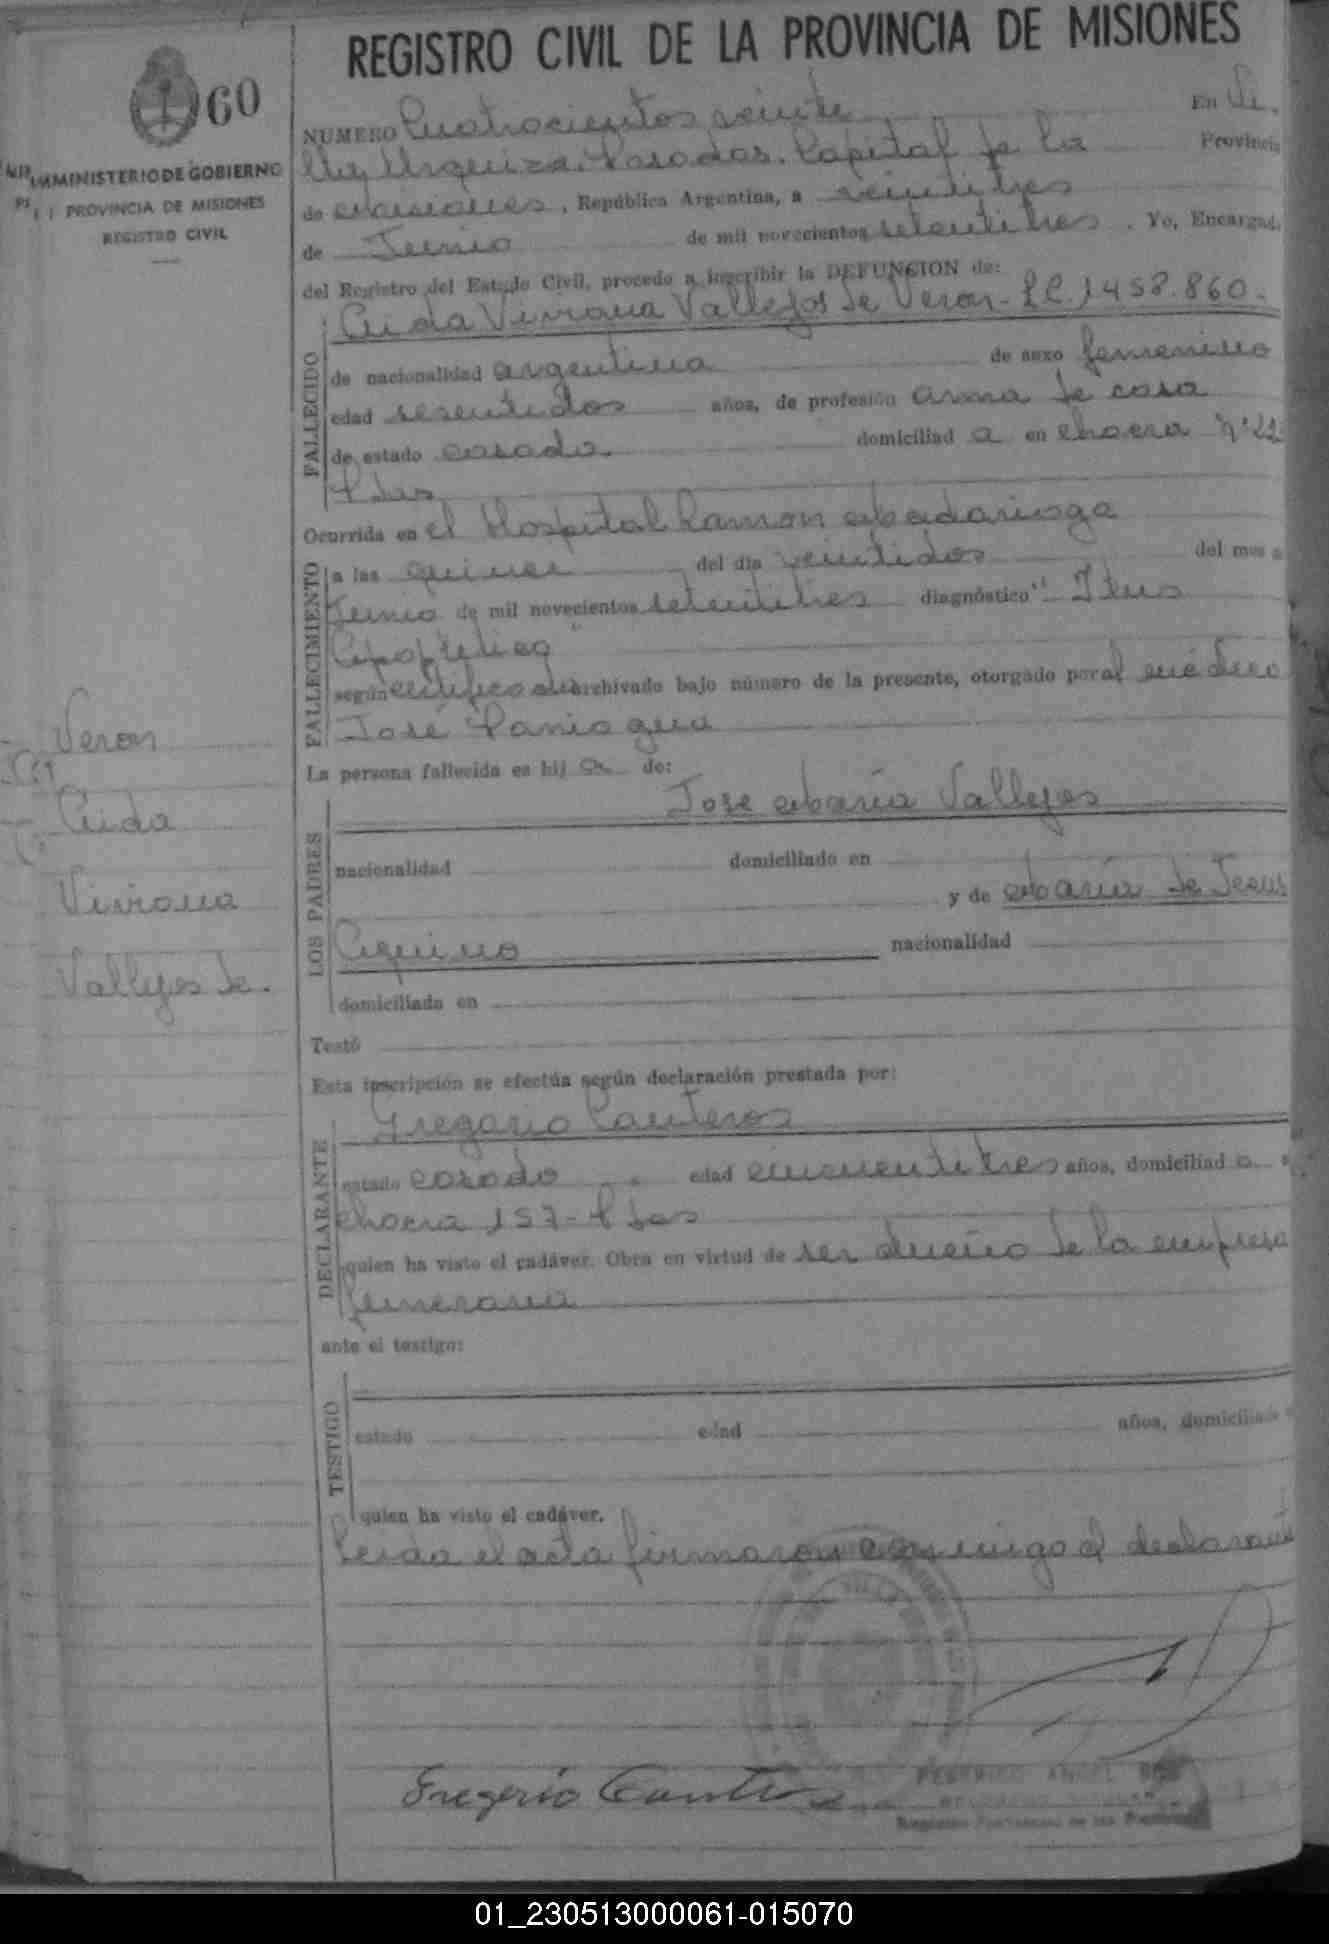 REGISTRO CIVIL DE LA PROVINCIA DE MISIONES
60
MINISTERIO DE GOBIERNO
PROVINCIA DE MISIONES
REGISTRO CIVIL
NUMERO Cuatrocientos veinte En Vi.
lla Urquiza, Posadas, Capital de la Provincia
de Misiones, República Argentina, a veintitres
de Junio de mil novecientos setentitres. Yo, Encargad.
del Registro del Estado Civil, procedo a inscribir la DEFUNCION de:
Aida Viviana Vallejos de Veron- LC. 1.458.860.
FALLECIDO
de nacionalidad argentina de sexo femenino
edad sesentidos años, de profesión ama de casa
de estado casada. domiciliad a en chacra Nº
Pdas
Ocurrida en el Hospital Ramon Madariaga
FALLECIMIENTO
a las quince del día veintidos del mes
Junio de mil novecientos setentitres diagnóstico "Itus
Apopletico"
según certificado archivado bajo número de la presente, otorgado por el médico
José Paniagua
La persona fallecida es hij a de:
Veron
Aida
Viviana
Vallejos de.
LOS PADRES
Jose Maria Vallejos
nacionalidad domiciliado en
y de Maria de Jesus
Aquino nacionalidad
domiciliada en
Testó
Esta inscripción se efectúa según declaración prestada por:
DECLARANTE
Gregorio Canteros
estado casado edad cincuentitres años, domiciliad o
chacra 157- Pdas
quien ha visto el cadáver. Obra en virtud de ser dueño de la empresa
funeraria
ante el testigo:
TESTIGO
estado edad años, domiciliado
quien ha visto el cadáver.
Leida el acta firmaron conmigo el declarante
Gregorio Canteros
FEDERICO ANGEL
01_230513000061-015070